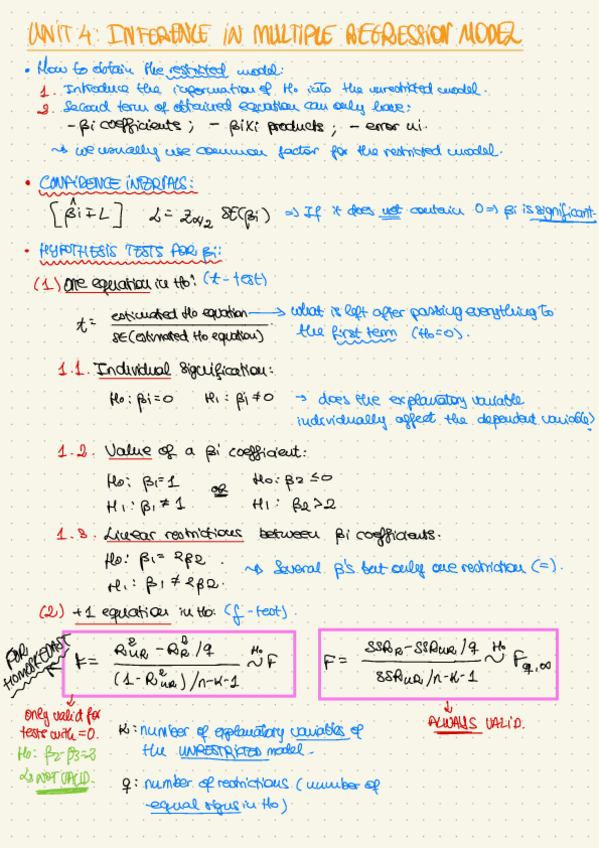 UNIT 4: INFERENCE IN MULTIPLE REGRESSION MODEL
• How to obtain the restricted model:
1. Introduce the information of H₀ into the unrestricted model.
2. Second term of obtained equation can only have:
- βi coefficients ; - βixi products ; - error ui.
↝ we usually use common factor for the restricted model.
• CONFIDENCE INTERVALS:
[β̂i ∓ L] L = Zα/2 SE(βi) ⇒ If it does not contain 0 ⇒ βi is significant.
• HYPOTHESIS TESTS FOR βi:
(1) One equation in H₀: (t-test)
t = estimated H₀ equation / SE(estimated H₀ equation) → what is left after passing everything to
the first term (H₀=0).
1.1. Individual signification:
H₀: βi=0 H₁: βi≠0 → does the explanatory variable
individually affect the dependent variable?
1.2. Value of a βi coefficient:
H₀: β₁=1 or H₀: β₂≤0
H₁: β₁≠1 H₁: β₂>2
1.3. Linear restrictions between βi coefficients.
H₀: β₁=2β₂.
↝ Several β's but only one restriction (=).
H₁: β₁≠2β₂.
(2) +1 equation in H₀: (f-test)
FOR HOMOSKEDAST
F = R²UR - R²R /q / (1-R²UR)/n-k-1 H₀~ F
F = SSRR - SSRUR /q / SSRUR/n-k-1 H₀~ Fq,∞
only valid for
tests with =0.
H₀: β₂-β₃=3
↳ NOT VALID.
ALWAYS VALID.
k: number of explanatory variables of
the UNRESTRICTED model.
q: number of restrictions (number of
equal signs in H₀)